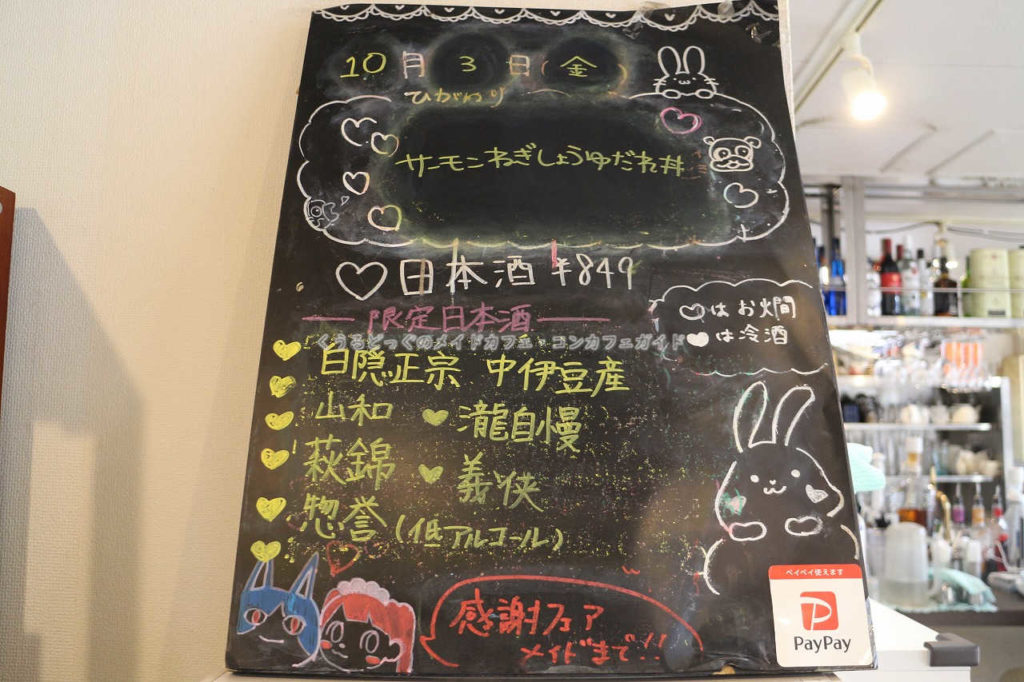 10月3日(金)
ひがわり
サーモンねぎしょうゆだれ丼
日本酒 ¥849
限定日本酒
はお燗
は冷酒
くうるどっぐのメイドカフェ・コンカフェガイド
白隠正宗 中伊豆産
山和 瀧自慢
萩錦 義侠
惣誉(低アルコール)
感謝フェア
メイドまで!!
ペイペイ使えます
PayPay